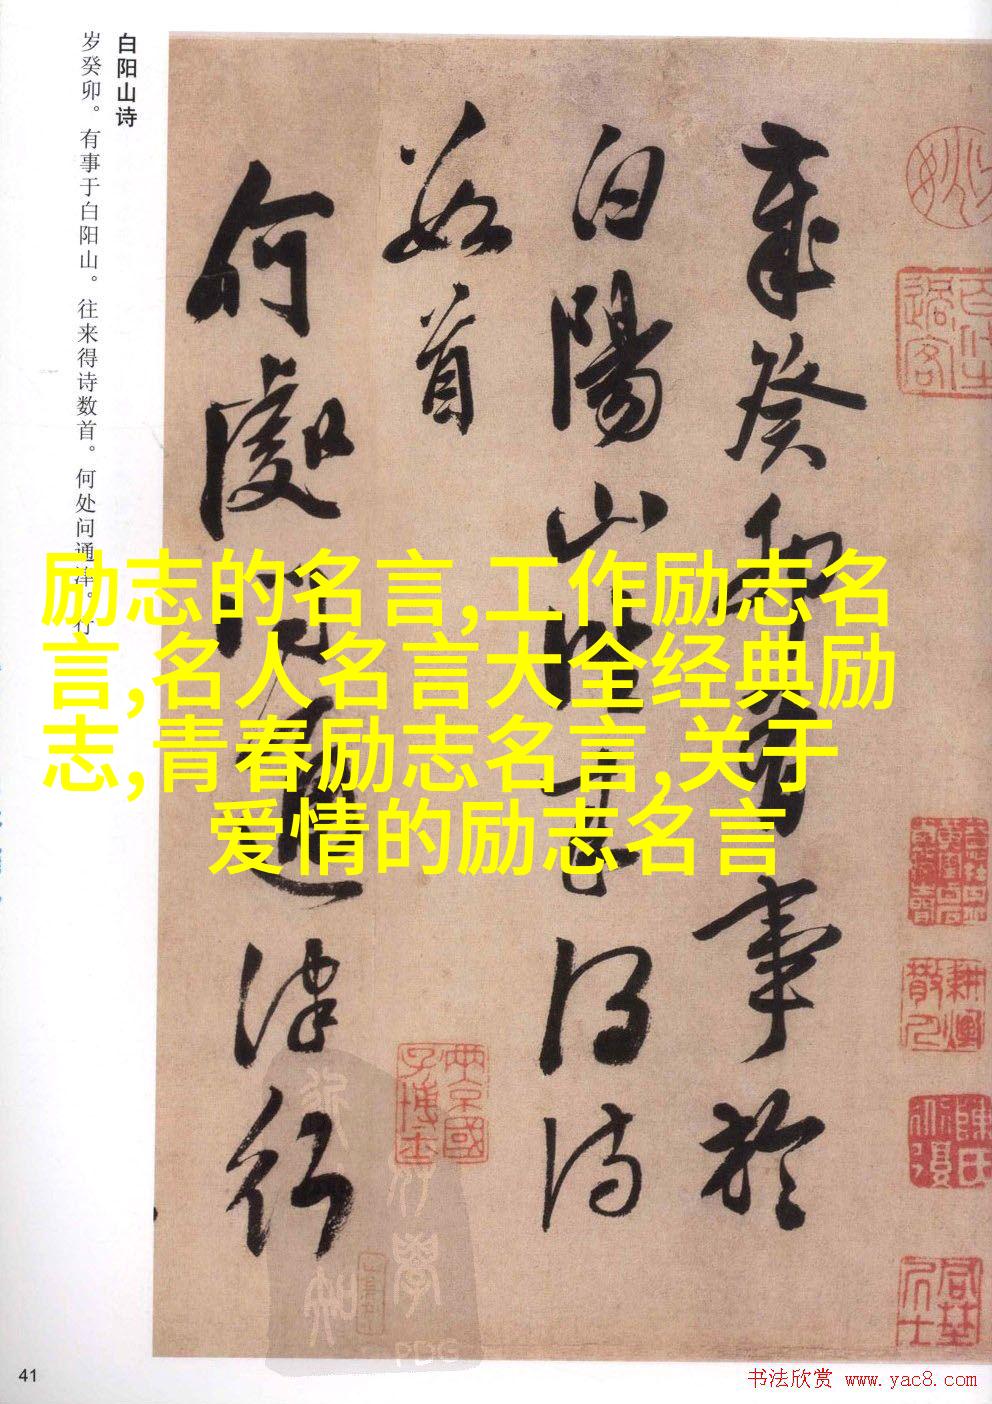 白阳山诗
岁癸卯。有事于白阳山。往来得诗数首。何处问通津。行
歲癸卯有事於
白陽山往来得詩
數首
何處問通津行
励志的名言,工作励志名
言,名人名言大全经典励
志,青春励志名言,关于
爱情的励志名言
耕煙
散人
陳氏
41
书法欣赏 www.yac8.com
PDG